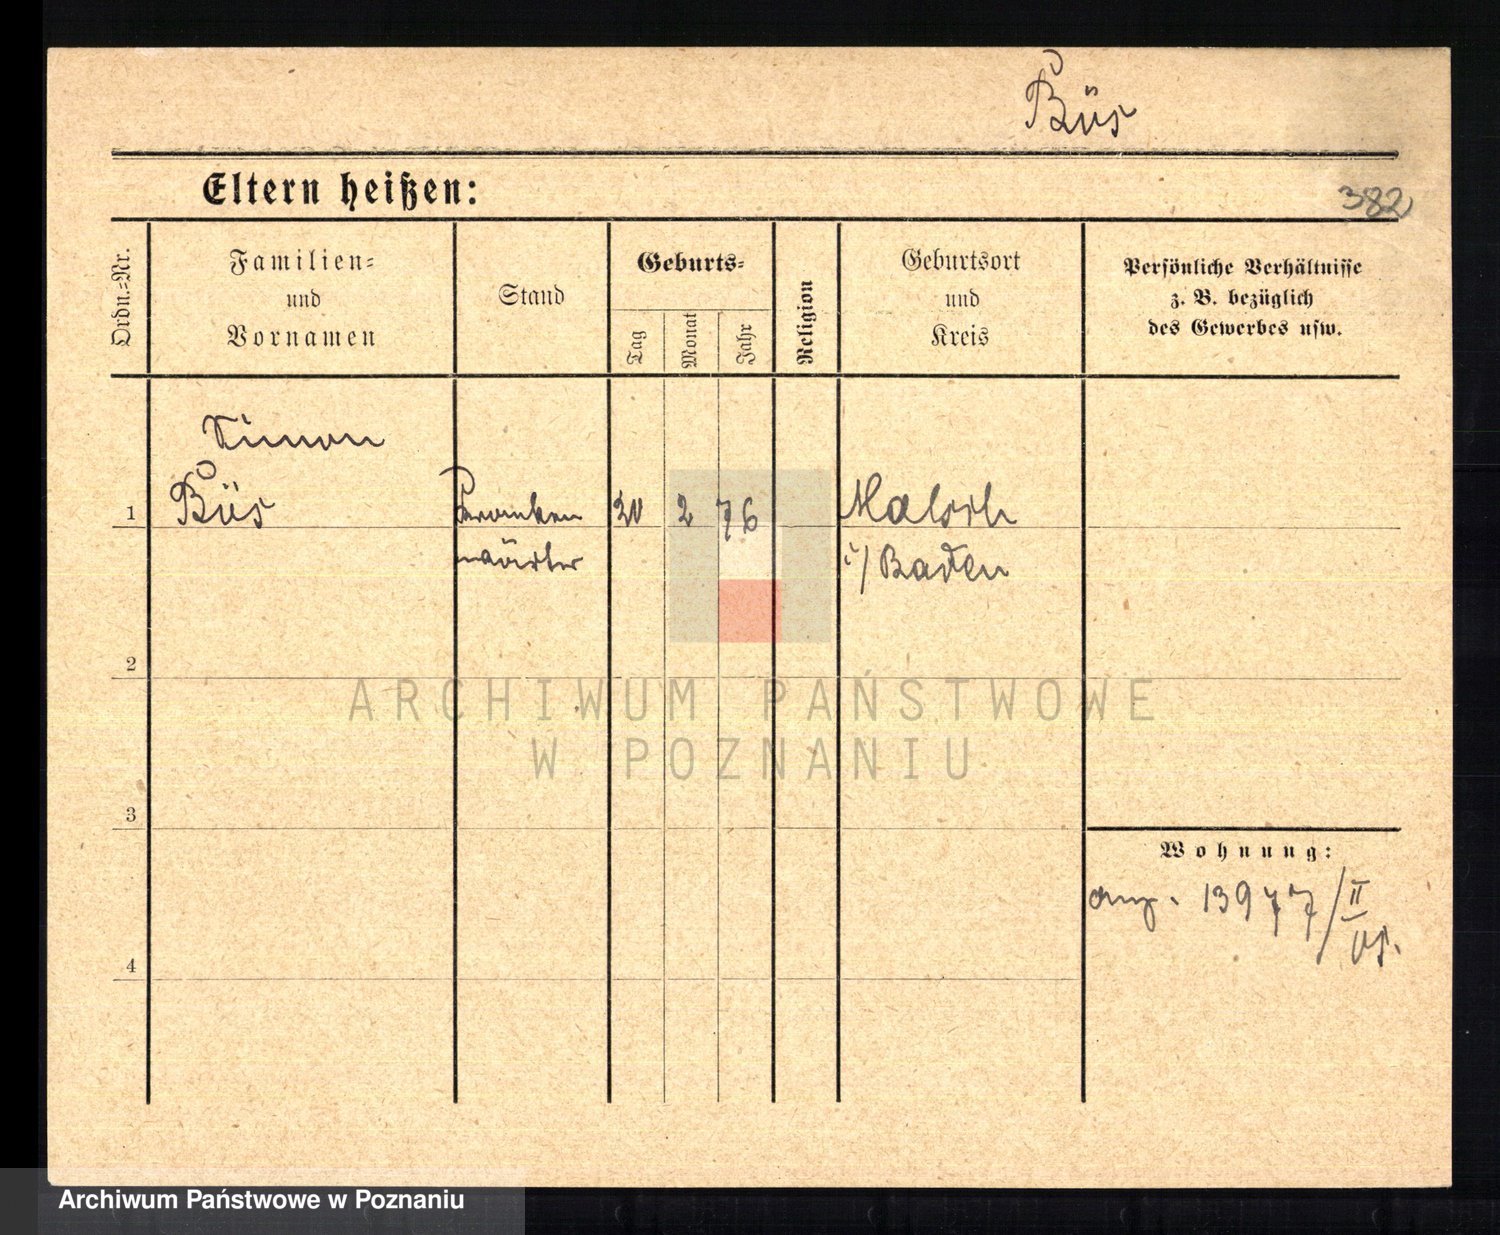 Büs
Eltern heißen:
382
Ordn.-Nr.
Familien-
und
Vornamen
Stand
Geburts-
Tag
Monat
Jahr
Religion
Geburtsort
und
Kreis
Persönliche Verhältnisse
z. B. bezüglich
des Gewerbes usw.
Simon
1
Büs
Kranken
wärter
20
2
76
Malsch
i/ Baden
2
ARCHIWUM PAŃSTWOWE
W POZNANIU
3
Wohnung:
13977/II
4
Archiwum Państwowe w Poznaniu